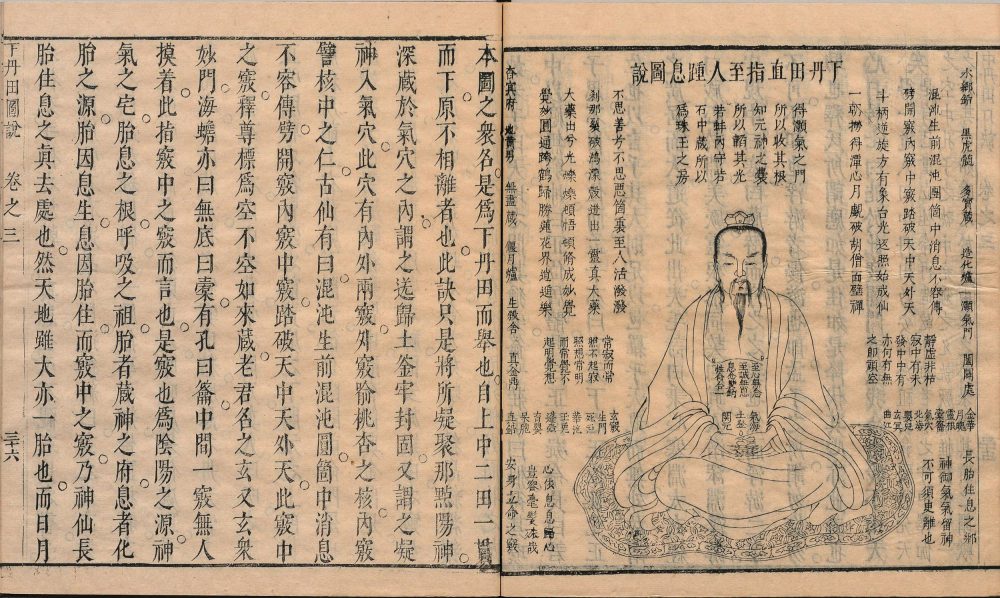 下丹田直指至人踵息圖說
水鄉鉛 黑虎髓 多寶藏 造化爐 灝氣門 闔闢處
混沌生前混沌圓箇中消息不容傳
劈開竅內竅中竅踏破天中天外天
斗柄逆旋方有象台光返照始成仙
一朝撈得潭心月覷破胡僧面壁禪
得灝氣之門
所以收其根
知元神之囊
所以韜其光
若蚌內守若
石中藏所以
爲珠玉之房
不思善兮不思惡箇裏至人活潑潑
剎那裂破混沌殼迸出一靈真大藥
大藥出兮光爍爍頓悟頓修成妙覺
覺妙圓通跨鶴歸勝蓮花界逍遙樂
杳冥府 無盡藏 偃月爐 生殺舍
靜虛非枯
寂中有未
發中中有
亦何有無
之即頑空
金華
月窟
靈根
氣穴
北海
曲江
長胎住息之鄉
神御氣氣留神
不可須更離也
氣海
關元
常寂而常
照不起寂
照想常明
而常覺不
起明覺想
玄關
生門
死戶
心依息息歸心
豈容毫髮殊哉
安身立命之竅
本圖之衆名是爲下丹田而舉也自上中二田一貫
而下原不相離者也此訣只是將所凝聚那點陽神
深藏於氣穴之內謂之送歸土釜牢封固又謂之凝
神入氣穴此穴有內外兩竅外竅喻桃杏之核內竅
譬核中之仁古仙有曰混沌生前混沌圓箇中消息
不容傳劈開竅內竅中竅踏破天中天外天此竅中
之竅釋尊標爲空不空如來藏老君名之玄又玄衆
妙門海蟾亦曰無底曰橐有孔曰籥中間一竅無人
摸着此指竅中之竅而言也是竅也爲陰陽之源神
氣之宅胎息之根呼吸之祖胎者藏神之府息者化
胎之源胎因息生息因胎住而竅中之竅乃神仙長
胎住息之眞去處也然天地雖大亦一胎也而日月
下丹田圖說 卷之三 三十六